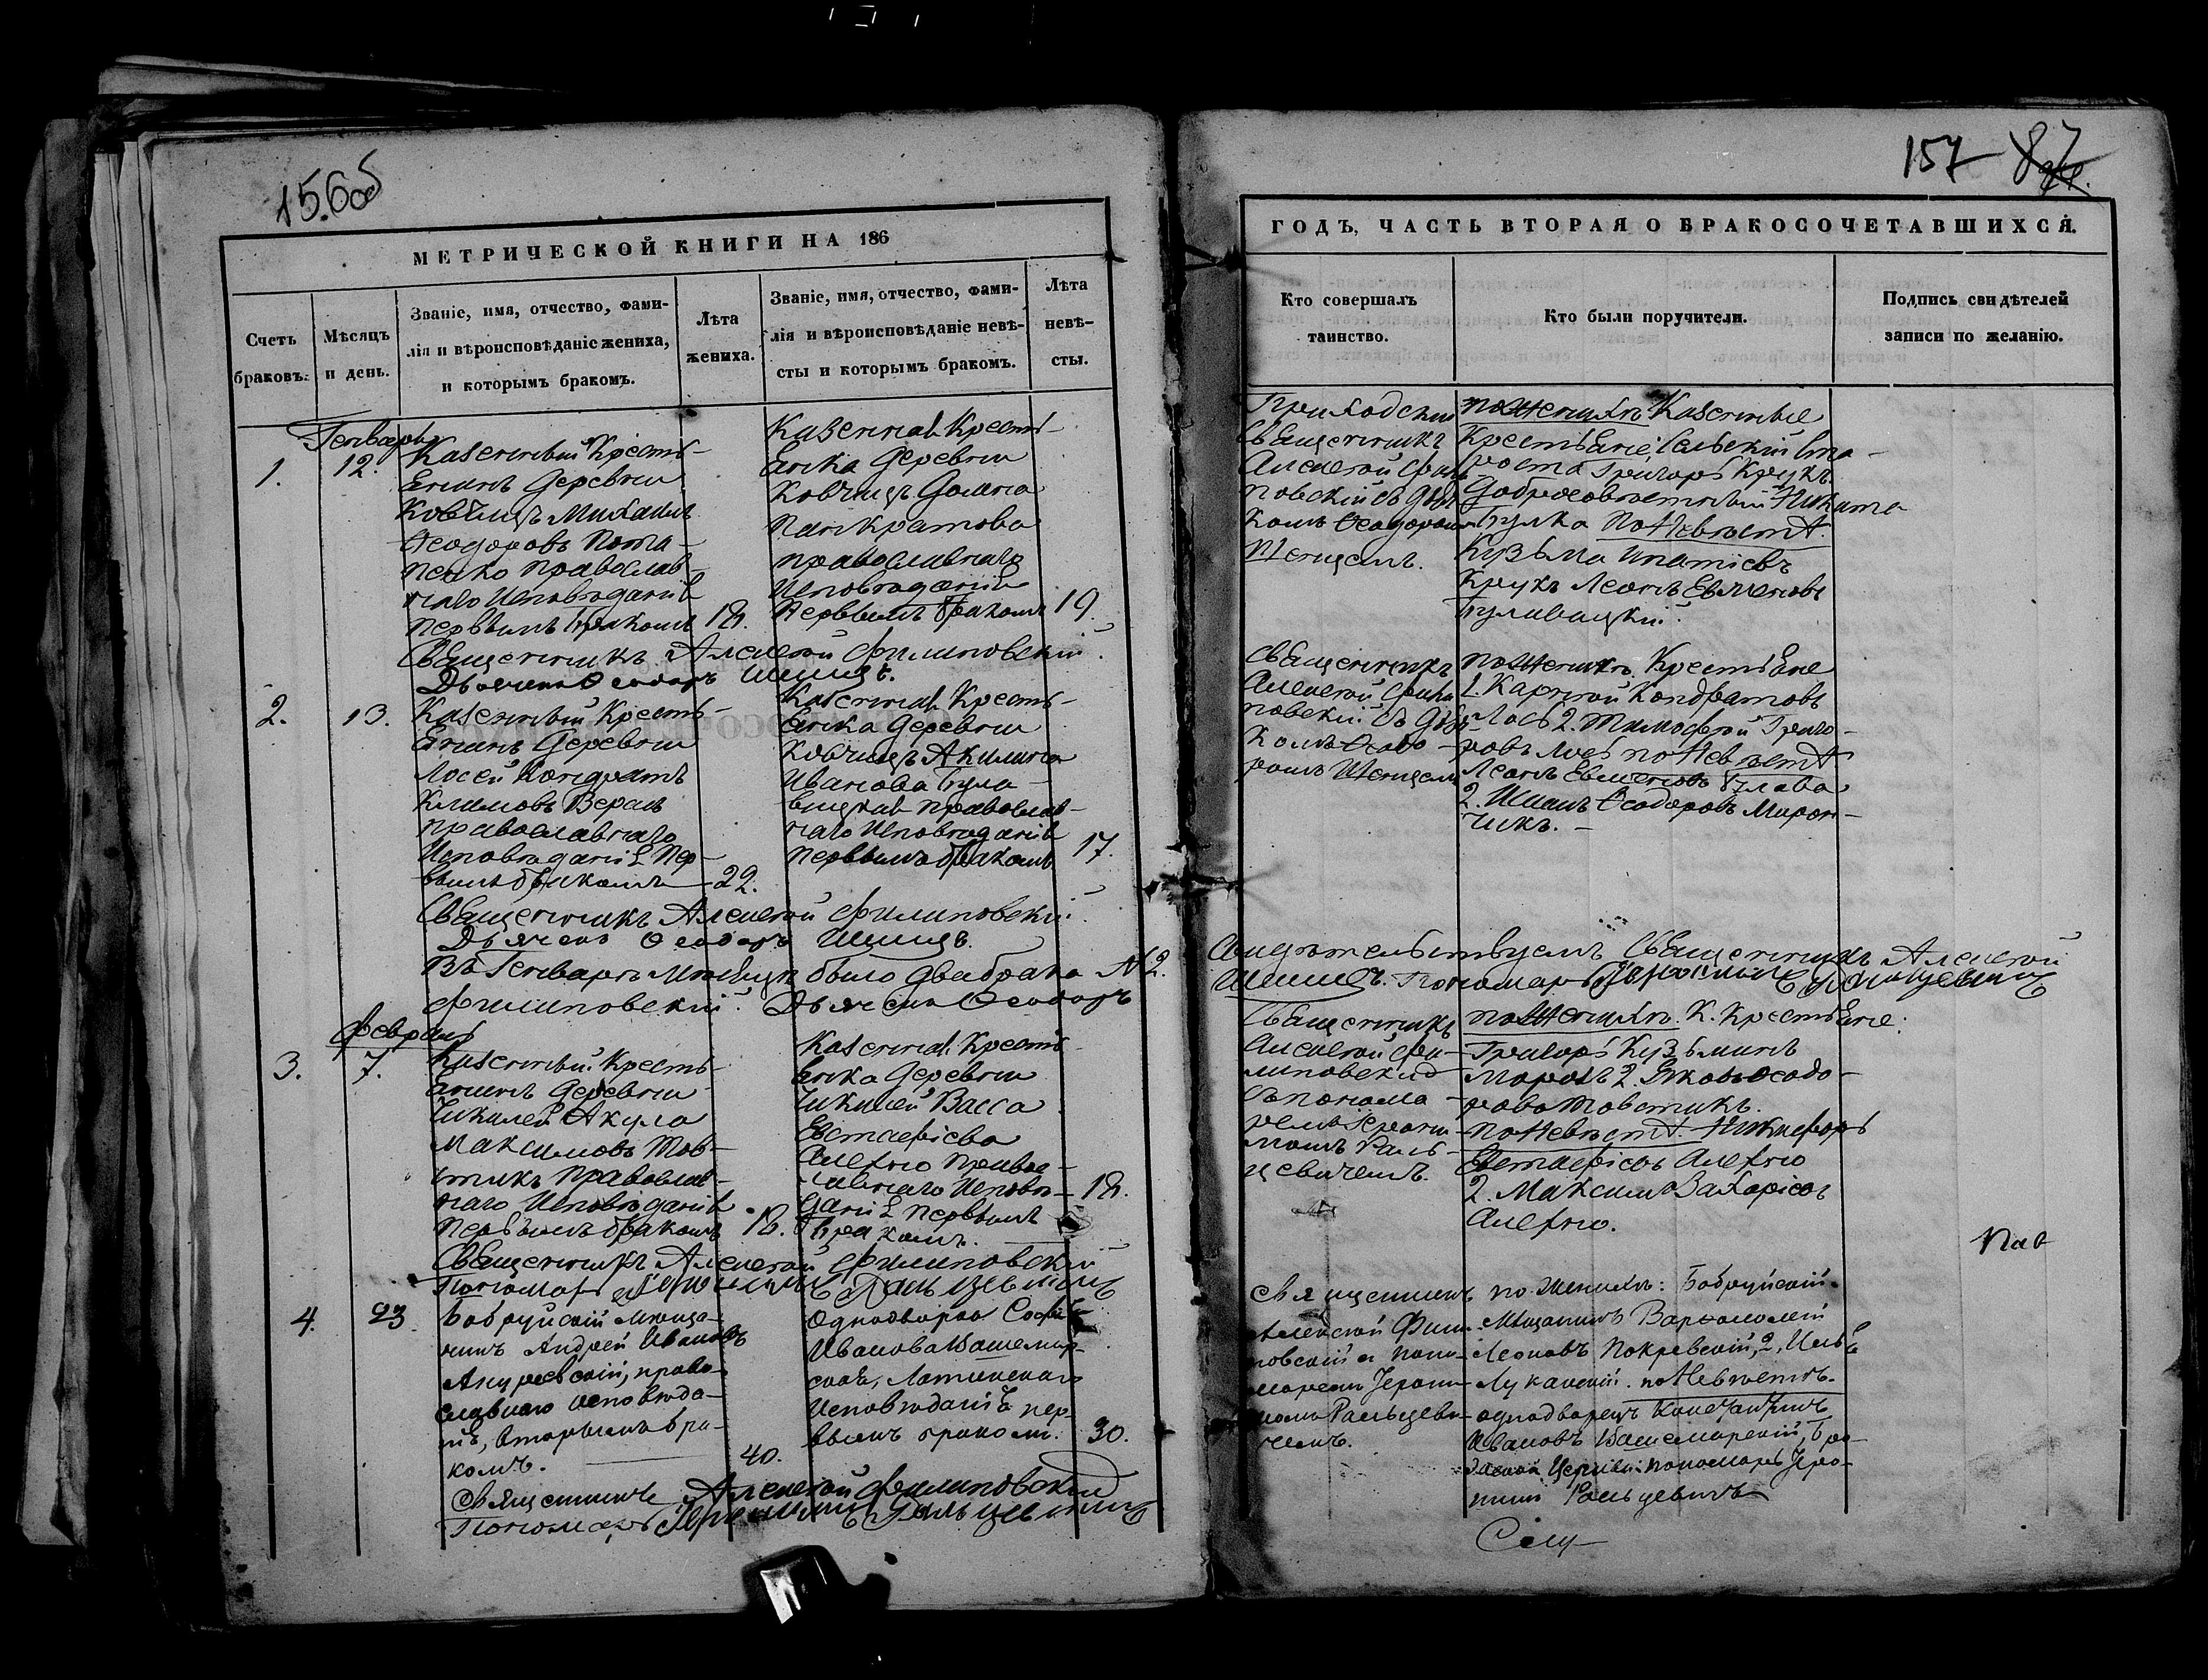 156об
МЕТРИЧЕСКОЙ КНИГИ НА 186
Счетъ браковъ.
Мѣсяцъ и день.
Званіе, имя, отчество, фами-
лія и вѣроисповѣданіе жениха,
и которымъ бракомъ.
Лѣта жениха.
Званіе, имя, отчество, фами-
лія и вѣроисповѣданіе невѣ-
сты и которымъ бракомъ.
Лѣта невѣ-
сты.
Генварь
1.
12.
Казенный Кресть-
янинъ Деревни
Ковчицъ Михаилъ
Ѳеодоровъ Пота-
пенко православ-
наго Исповѣданія
первымъ бракомъ
18.
Казенная Кресть-
янка Деревни
Ковчицъ Домна
Панкратова
православнаго
Исповѣданія
первымъ бракомъ
19.
Священникъ Алексѣй Филиповскій
Дьячекъ Ѳеодоръ
2.
13.
Казенный Кресть-
янинъ Деревни
Лосей Кондратъ
Климовъ Верашъ
православнаго
Исповѣданія пер-
вымъ бракомъ
22.
Казенная Кресть-
янка Деревни
Ковчицъ Акилина
Иванова
православ-
наго Исповѣданія
первымъ бракомъ
17.
Священникъ Алексѣй Филиповскій
Дьячекъ Ѳеодоръ
Въ Генварѣ Мѣсяцѣ было два брака № 2.
Филиповскій. Дьячекъ Ѳеодоръ
Февраль
3.
7.
Казенный Кресть-
янинъ Деревни
Чикилей Акула
Максимовъ Тов-
стикъ православ-
наго Исповѣданія
первымъ бракомъ
18.
Казенная Кресть-
янка Деревни
Чикилей Васса
Евстафіева
Алехно Право-
славнаго Исповѣ-
данія первымъ
бракомъ.
18.
Священникъ Алексѣй Филиповскій
Пономарь Іеронимъ Ральцевичъ
4.
23
Бобруйскій Мѣща-
нинъ Андрей Ивановъ
право-
славнаго исповѣда-
нія, вторымъ бра-
комъ.
40.
Однодворка Софія
Иванова Вашемир-
ская, Латинскаго
Исповѣданія пер-
вымъ бракомъ.
30.
Священникъ Алексѣй Филиповскій
Пономарь Іеронимъ Ральцевичъ
157
87
ГОДЪ, ЧАСТЬ ВТОРАЯ О БРАКОСОЧЕТАВШИХСЯ.
Кто совершалъ
таинство.
Кто были поручители.
Подпись свидѣтелей
записи по желанію.
Приходскій
Священникъ
Алексѣй Фили-
повскій съ Дьяч-
комъ Ѳеодоромъ
по Женихѣ Казенные
Крестьяне, Сельскій Ста-
роста Григорій Крукъ
Добросовѣстный Никита
по Невѣстѣ.
Кузьма Ипатіевъ
Крукъ Леонъ Евменовъ
Священникъ
Алексѣй Фили-
повскій съ Дьяч-
комъ Ѳеодо-
ромъ
по Женихѣ. Крестьяне
1. Карней Кондратовъ
Лось 2. Тимофей Григо-
ровъ Лось по Невѣстѣ
Леонъ Евменовъ
2. Ѳеодоровъ Мирон-
чикъ.
Свидѣтельствуемъ Священникъ Алексѣй
Пономарь Іеронимъ Ральцевичъ
Священникъ
Алексѣй Фи-
липовскій
съ понома-
ремъ Іерони-
момъ Раль-
цевичемъ.
по Женихѣ. К. Крестьяне:
Григорій Кузьминъ
2. Яковъ Ѳеодо-
ровъ Товстикъ.
по Невѣстѣ. Никифоръ
Евстафіевъ Алехно
2. Максимъ Захаріевъ
Алехно.
Пав
Священникъ
Алексѣй Фили-
повскій и поно-
маремъ Іерони-
момъ Ральцеви-
чемъ.
по Женихѣ: Бобруйскій
Мѣщанинъ Варѳоломей
Леоновъ Покревскій, 2, Илья
Луканскій. по Невѣстѣ.
однодворецъ Константинъ
Ивановъ Вашемирскій,
Церкви пономарь Іеро-
нимъ Ральцевичъ